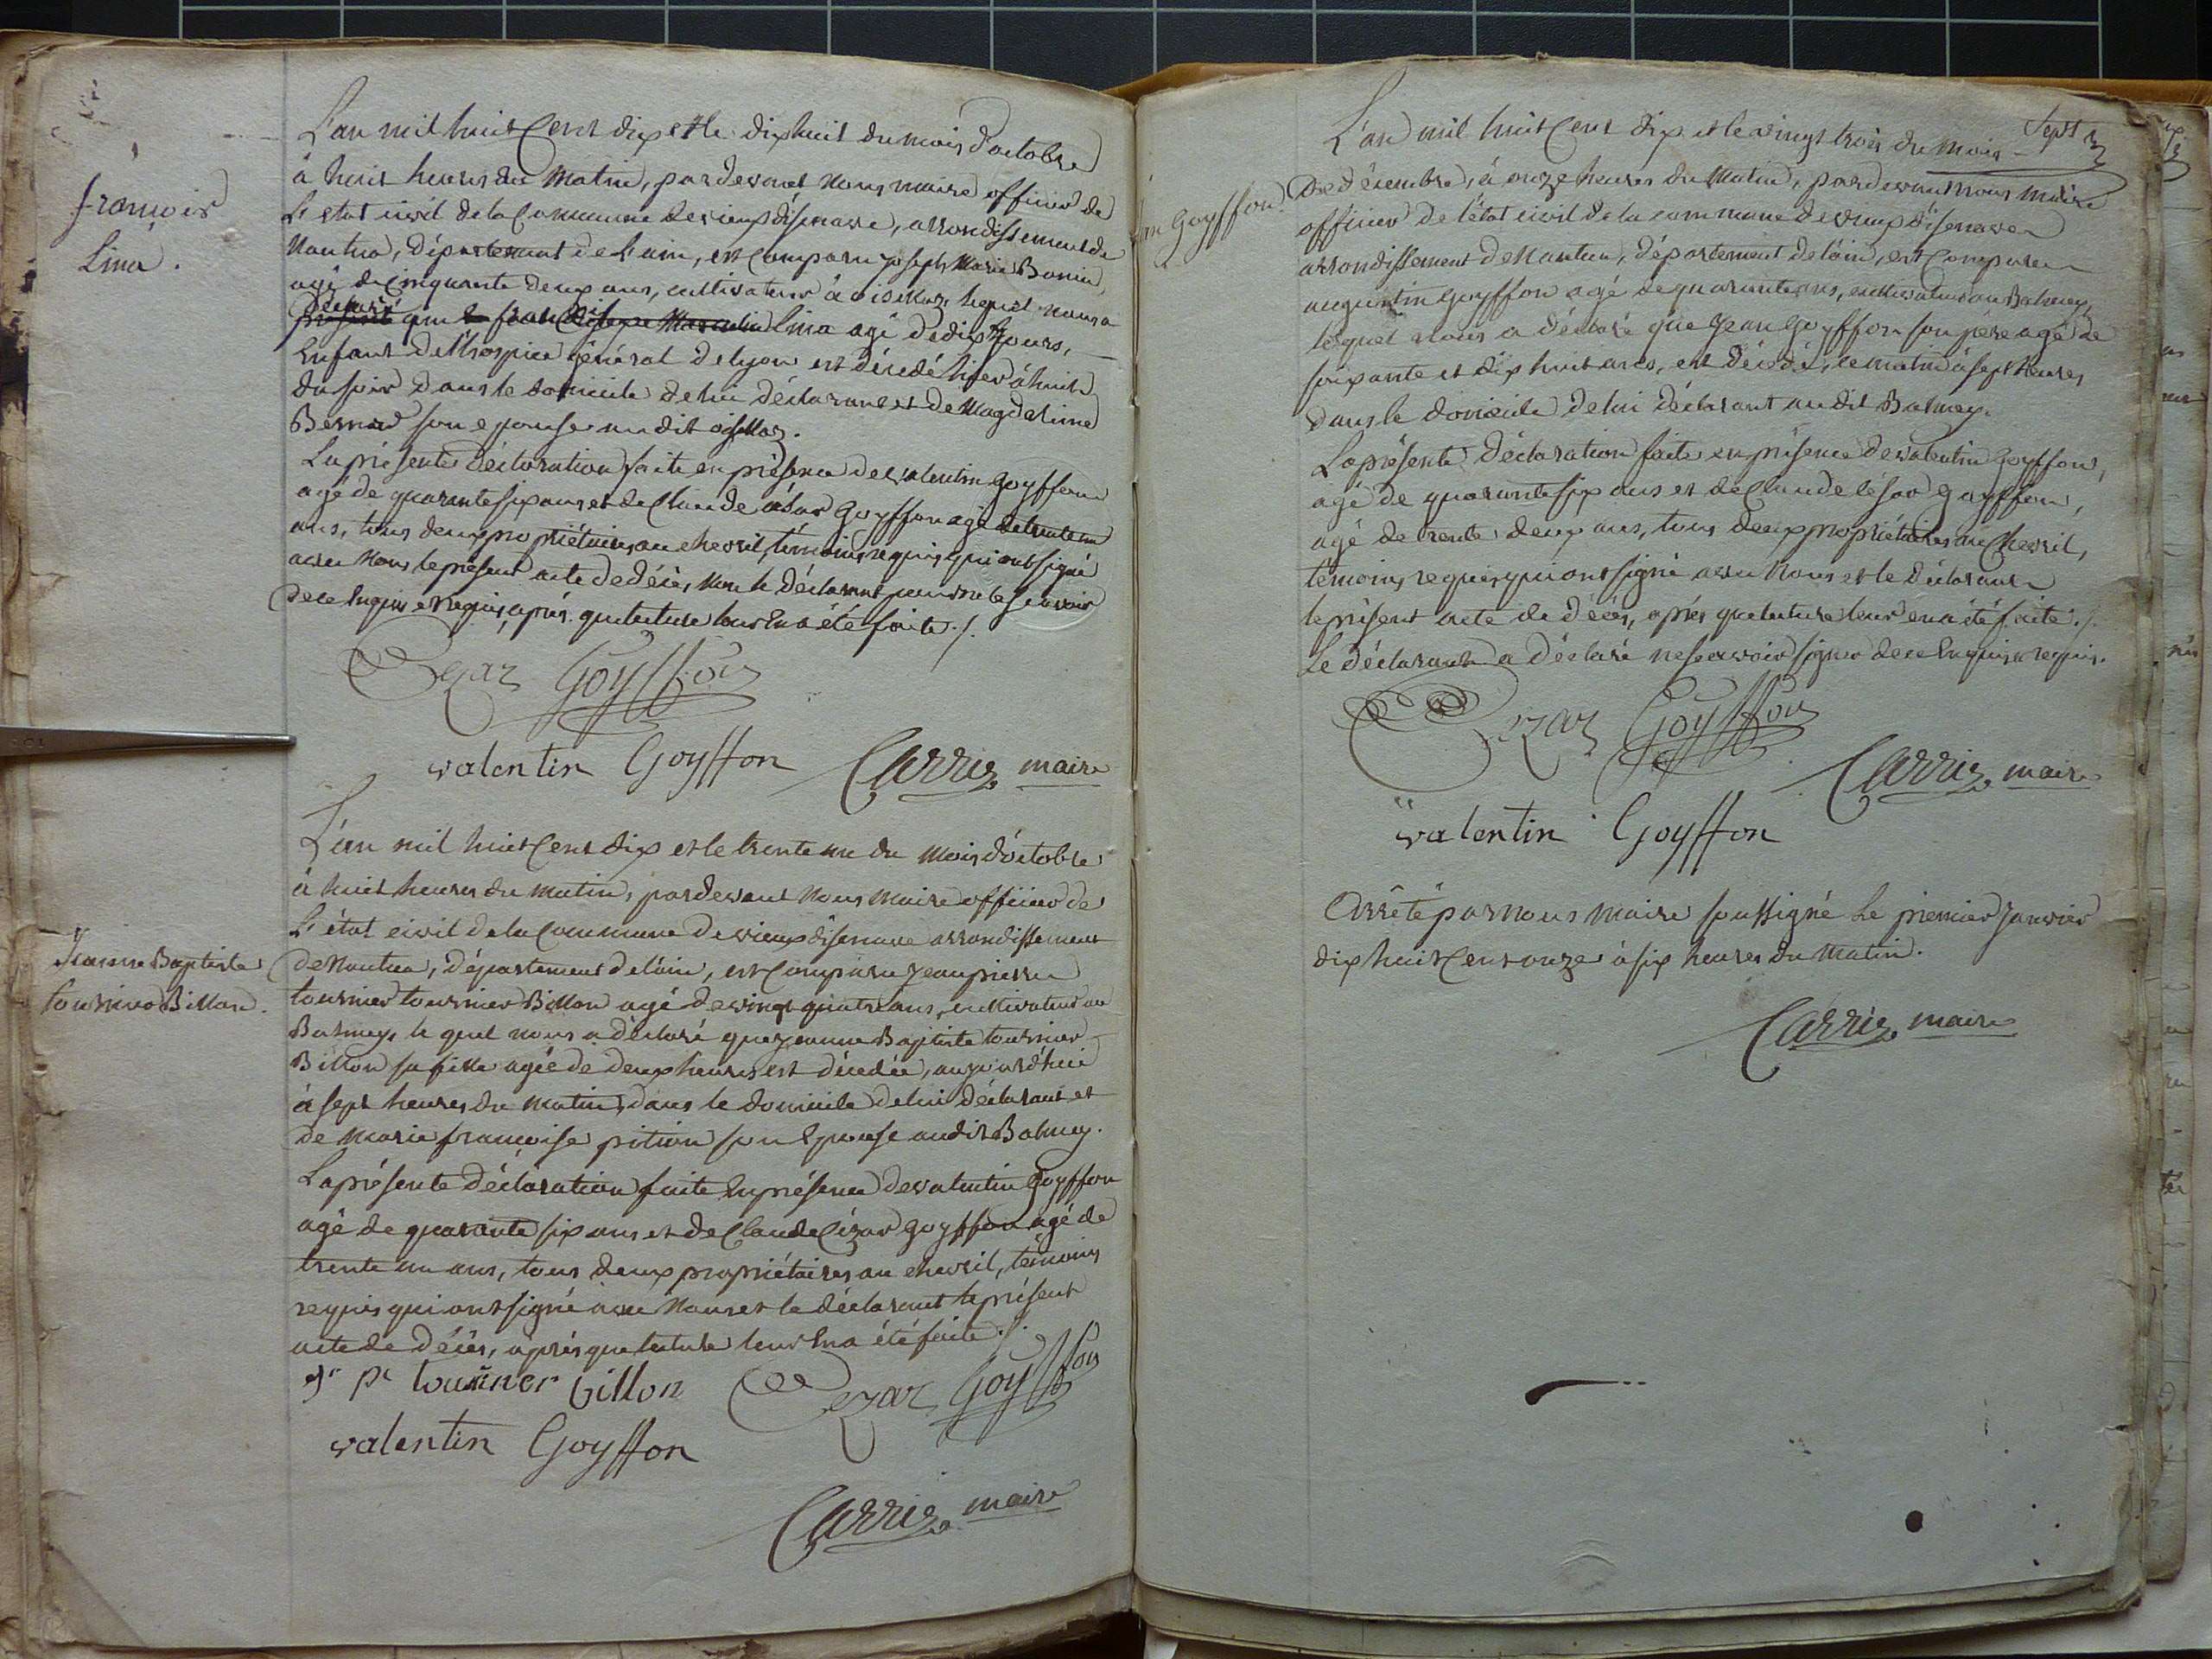 françois
Lina.
L'an mil huit cent dix et le dix huit du mois d'octobre
à huit heures du Matin, pardevant Nous maire officier de
L'état civil de la Commune de vieux d'isenave, arrondissement de
Nantua, département de l'ain, est Comparu joseph Marie
agé de cinquante deux ans, cultivateur à lequel nous a
déclaré que françois Lina agé de dix jours,
Enfant de l'hospice général de lyon est décédé hier à huit
du soir dans le domicile de lui déclarant et de Magdeleine
son epouse audit
La présente déclaration faite en présence de valentin Goyffon
agé de quarante six ans et de Claude césar Goyffon agé de trente un
ans, tous deux propriétaires au chevril, témoins requis qui ont signé
avec Nous le présent acte de décès, non le déclarant pour ne le sçavoir
de ce Enquis et requis, après que lecture leur En a été faite ./.
Cezar Goyffon
valentin Goyffon Carrier maire
Jeanne Baptiste
tournier Billon.
L'an mil huit Cent dix et le trente un du Mois d'octobre
à huit heures du matin, pardevant Nous Maire officier de
L'état civil de la Commune de vieux d'isenave arrondissement
de Nantua, département de l'ain, est Comparu jean pierre
tournier tournier Billon agé de vingt quatre ans, cultivateur au
Balmey, le quel nous a déclaré que jeanne Baptiste tournier
Billon sa fille agée de deux heures est décédée, aujourd'hui
à sept heures du matin, dans le domicile de lui déclarant et
de Marie françoise pition son Epouse audit Balmey.
La présente déclaration faite En présence de valentin Goyffon
agé de quarante six ans et de Claude Cézar Goyffon agé de
trente un ans, tous deux propriétaires au chevril, témoins
requis qui ont signé avec Nous et le déclarant le présent
acte de décès, après que lecture leur En a été faite ./.
jn pe tournier billon Cezar Goyffon
valentin Goyffon
Carrier maire
Sept
Goyffon.
L'an mil huit Cent dix et le vingt trois du Mois
De décembre, à onze heures du Matin, pardevant nous Maire
officier de l'état civil de la commune de vieux d'isenave
arrondissement de Nantua, département de l'ain, est Comparu
augustin Goyffon agé de quarante ans, cultivateur au Balmey,
lequel nous a déclaré que jean Goyffon son père agé de
soixante et dix huit ans, est décédé, ce matin à sept heures
dans le domicile de lui déclarant audit Balmey.
La présente déclaration faite en présence de valentin Goyffon,
agé de quarante six ans et de Claude César Goyffon,
agé de trente deux ans, tous deux propriétaires au Chevril,
témoins requis qui ont signé avec Nous et le déclarant
le présent acte de décès, après que lecture leur en a été faite ./.
Le déclarant a déclaré ne sçavoir signer de ce Enquis et requis.
Cezar Goyffon
Carrier maire
valentin Goyffon
Arrêté par nous Maire soussigné Le premier Janvier
dix huit Cent onze à six heures du Matin.
Carrier maire